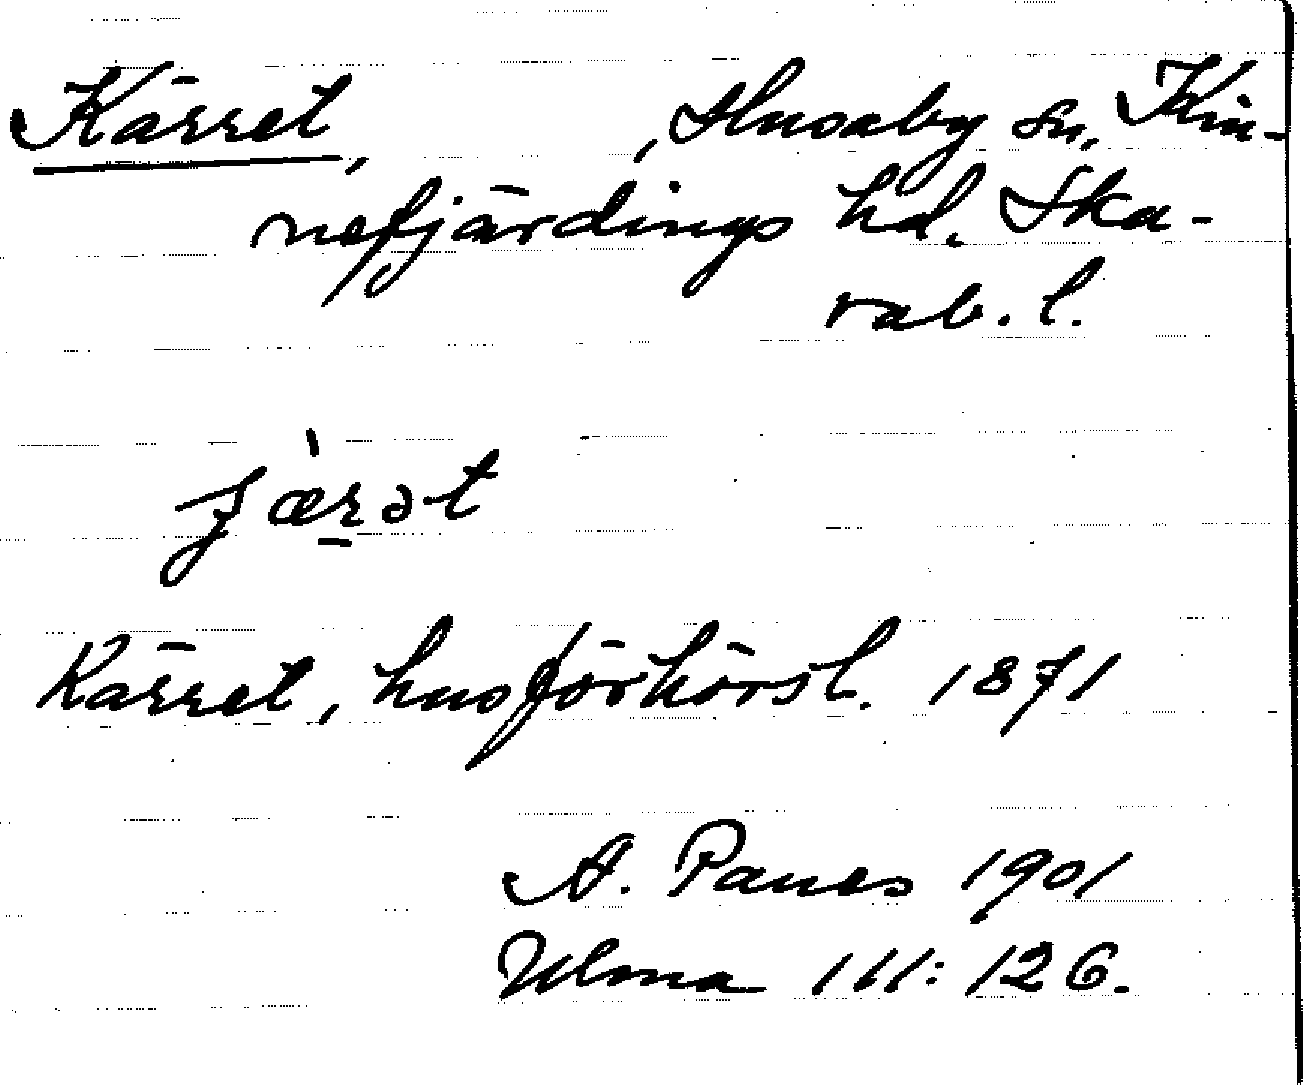 Kärret, , Husaby sn, Kin-
nefjärdings hd. Ska-
rab. l.
ɟæ̀ṟət
Kärret, husförhörsl. 1871
A. Panes 1901
Ulma 111:126.